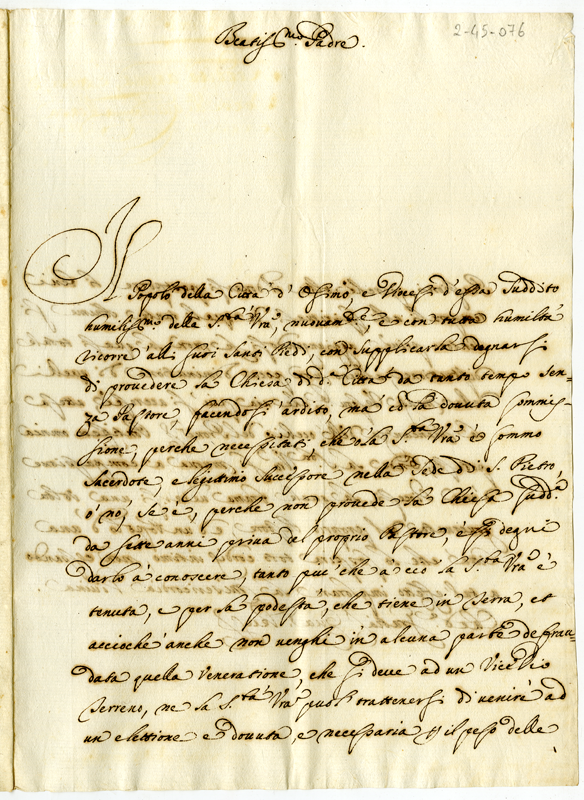 2-45-076
Beatiss.mo Padre.
Il Popolo della Città d'Osimo, e Diocesi d'essa suddito
humiliss.mo della S.tà Vra, nuovam.te, e con tutta humiltà
ricorre alli suoi Santi Piedi, con supplicarla degnarsi
di provedere la Chiesa di d.a Città da tanto tempo sen-
za Pastore, facendosi ardito, mà cõ la dovuta sommis-
sione, perche necessitati, che ò la S.tà Vra è sommo
sacerdote, e legittimo successore nella Sede di S. Pietro,
ò nò, se è, perche non provede la Chiesa sudd.a
da sette anni priva del proprio Pastore, e si degni
darlo à conoscere, tanto più che à ciò la S.tà Vra è
tenuta, e per la podestà, che tiene in terra, et
accioche anche non venghi in alcuna parte defrau-
data quella veneratione, che si deve ad un Vice Dio
terreno, ne la S.tà Vra può trattenersi di venire ad
un elettione e dovuta, e necessaria p il peso delle